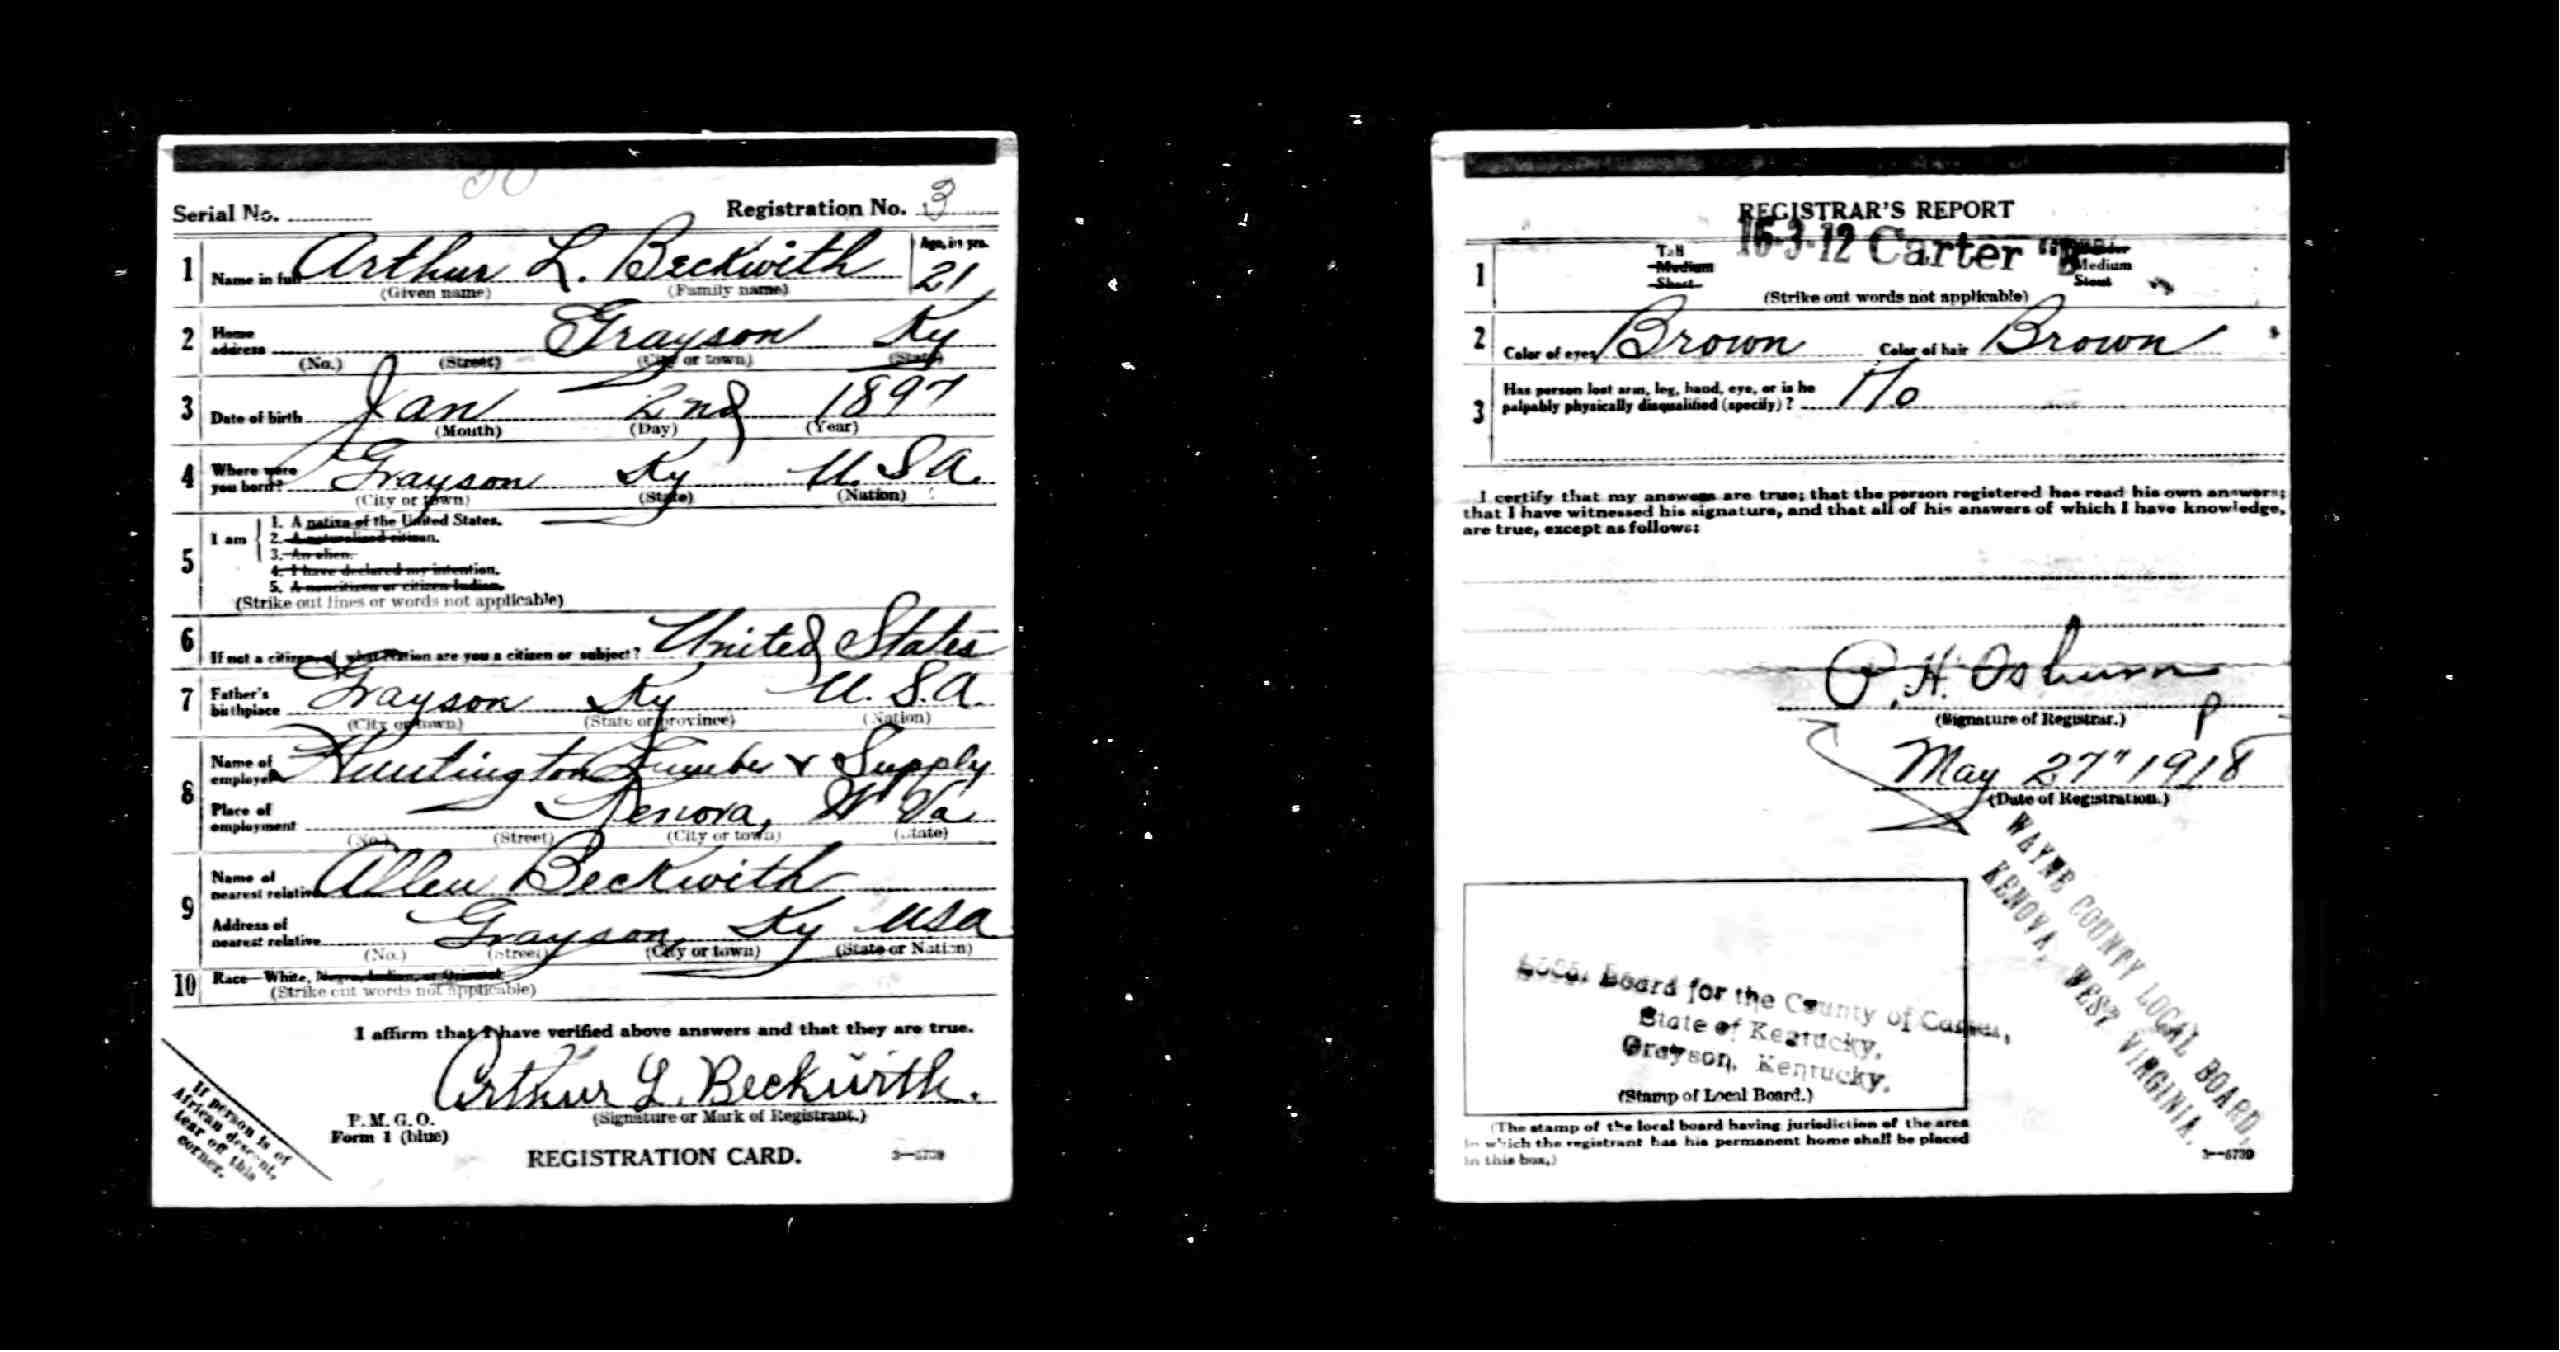 Serial No. Registration No. 3
1 Name in full Arthur L. Beckwith Age, in yrs. 21
(Given name) (Family name)
2 Home address Grayson Ky
(No.) (Street) (City or town) (State)
3 Date of birth Jan 2nd 1897
(Month) (Day) (Year)
4 Where were you born? Grayson Ky U.S.A.
(City or town) (State) (Nation)
5 I am
1. A native of the United States.
2. A naturalized citizen.
3. An alien.
4. I have declared my intention.
5. A noncitizen or citizen Indian.
(Strike out lines or words not applicable)
6 If not a citizen, of what Nation are you a citizen or subject? United States
7 Father's birthplace Grayson Ky U.S.A.
(City or town) (State or province) (Nation)
8 Name of employer Huntington Lumber & Supply
Place of employment Kenova, W Va
(No.) (Street) (City or town) (State)
9 Name of nearest relative Allen Beckwith
Address of nearest relative Grayson, Ky USA
(No.) (Street) (City or town) (State or Nation)
10 Race—White, Negro, Indian, or Oriental
(Strike out words not applicable)
I affirm that I have verified above answers and that they are true.
Arthur L. Beckwith.
P. M. G. O. (Signature or Mark of Registrant.)
Form 1 (blue)
REGISTRATION CARD. 3—6739
If person is of
African descent,
tear off this
corner.
REGISTRAR'S REPORT
16-3-12 Carter "B"
1 Tall Slender
Medium Medium
Short Stout
(Strike out words not applicable)
2 Color of eyes Brown Color of hair Brown
3 Has person lost arm, leg, hand, eye, or is he
palpably physically disqualified (specify)? No
I certify that my answers are true; that the person registered has read his own answers;
that I have witnessed his signature, and that all of his answers of which I have knowledge,
are true, except as follows:
P. H. Osburn
(Signature of Registrar.)
May 27" 1918
(Date of Registration.)
WAYNE COUNTY LOCAL BOARD,
KENOVA, WEST VIRGINIA.
Local Board for the County of Carter,
State of Kentucky,
Grayson, Kentucky.
(Stamp of Local Board.)
(The stamp of the local board having jurisdiction of the area
in which the registrant has his permanent home shall be placed
in this box.)
3—6739